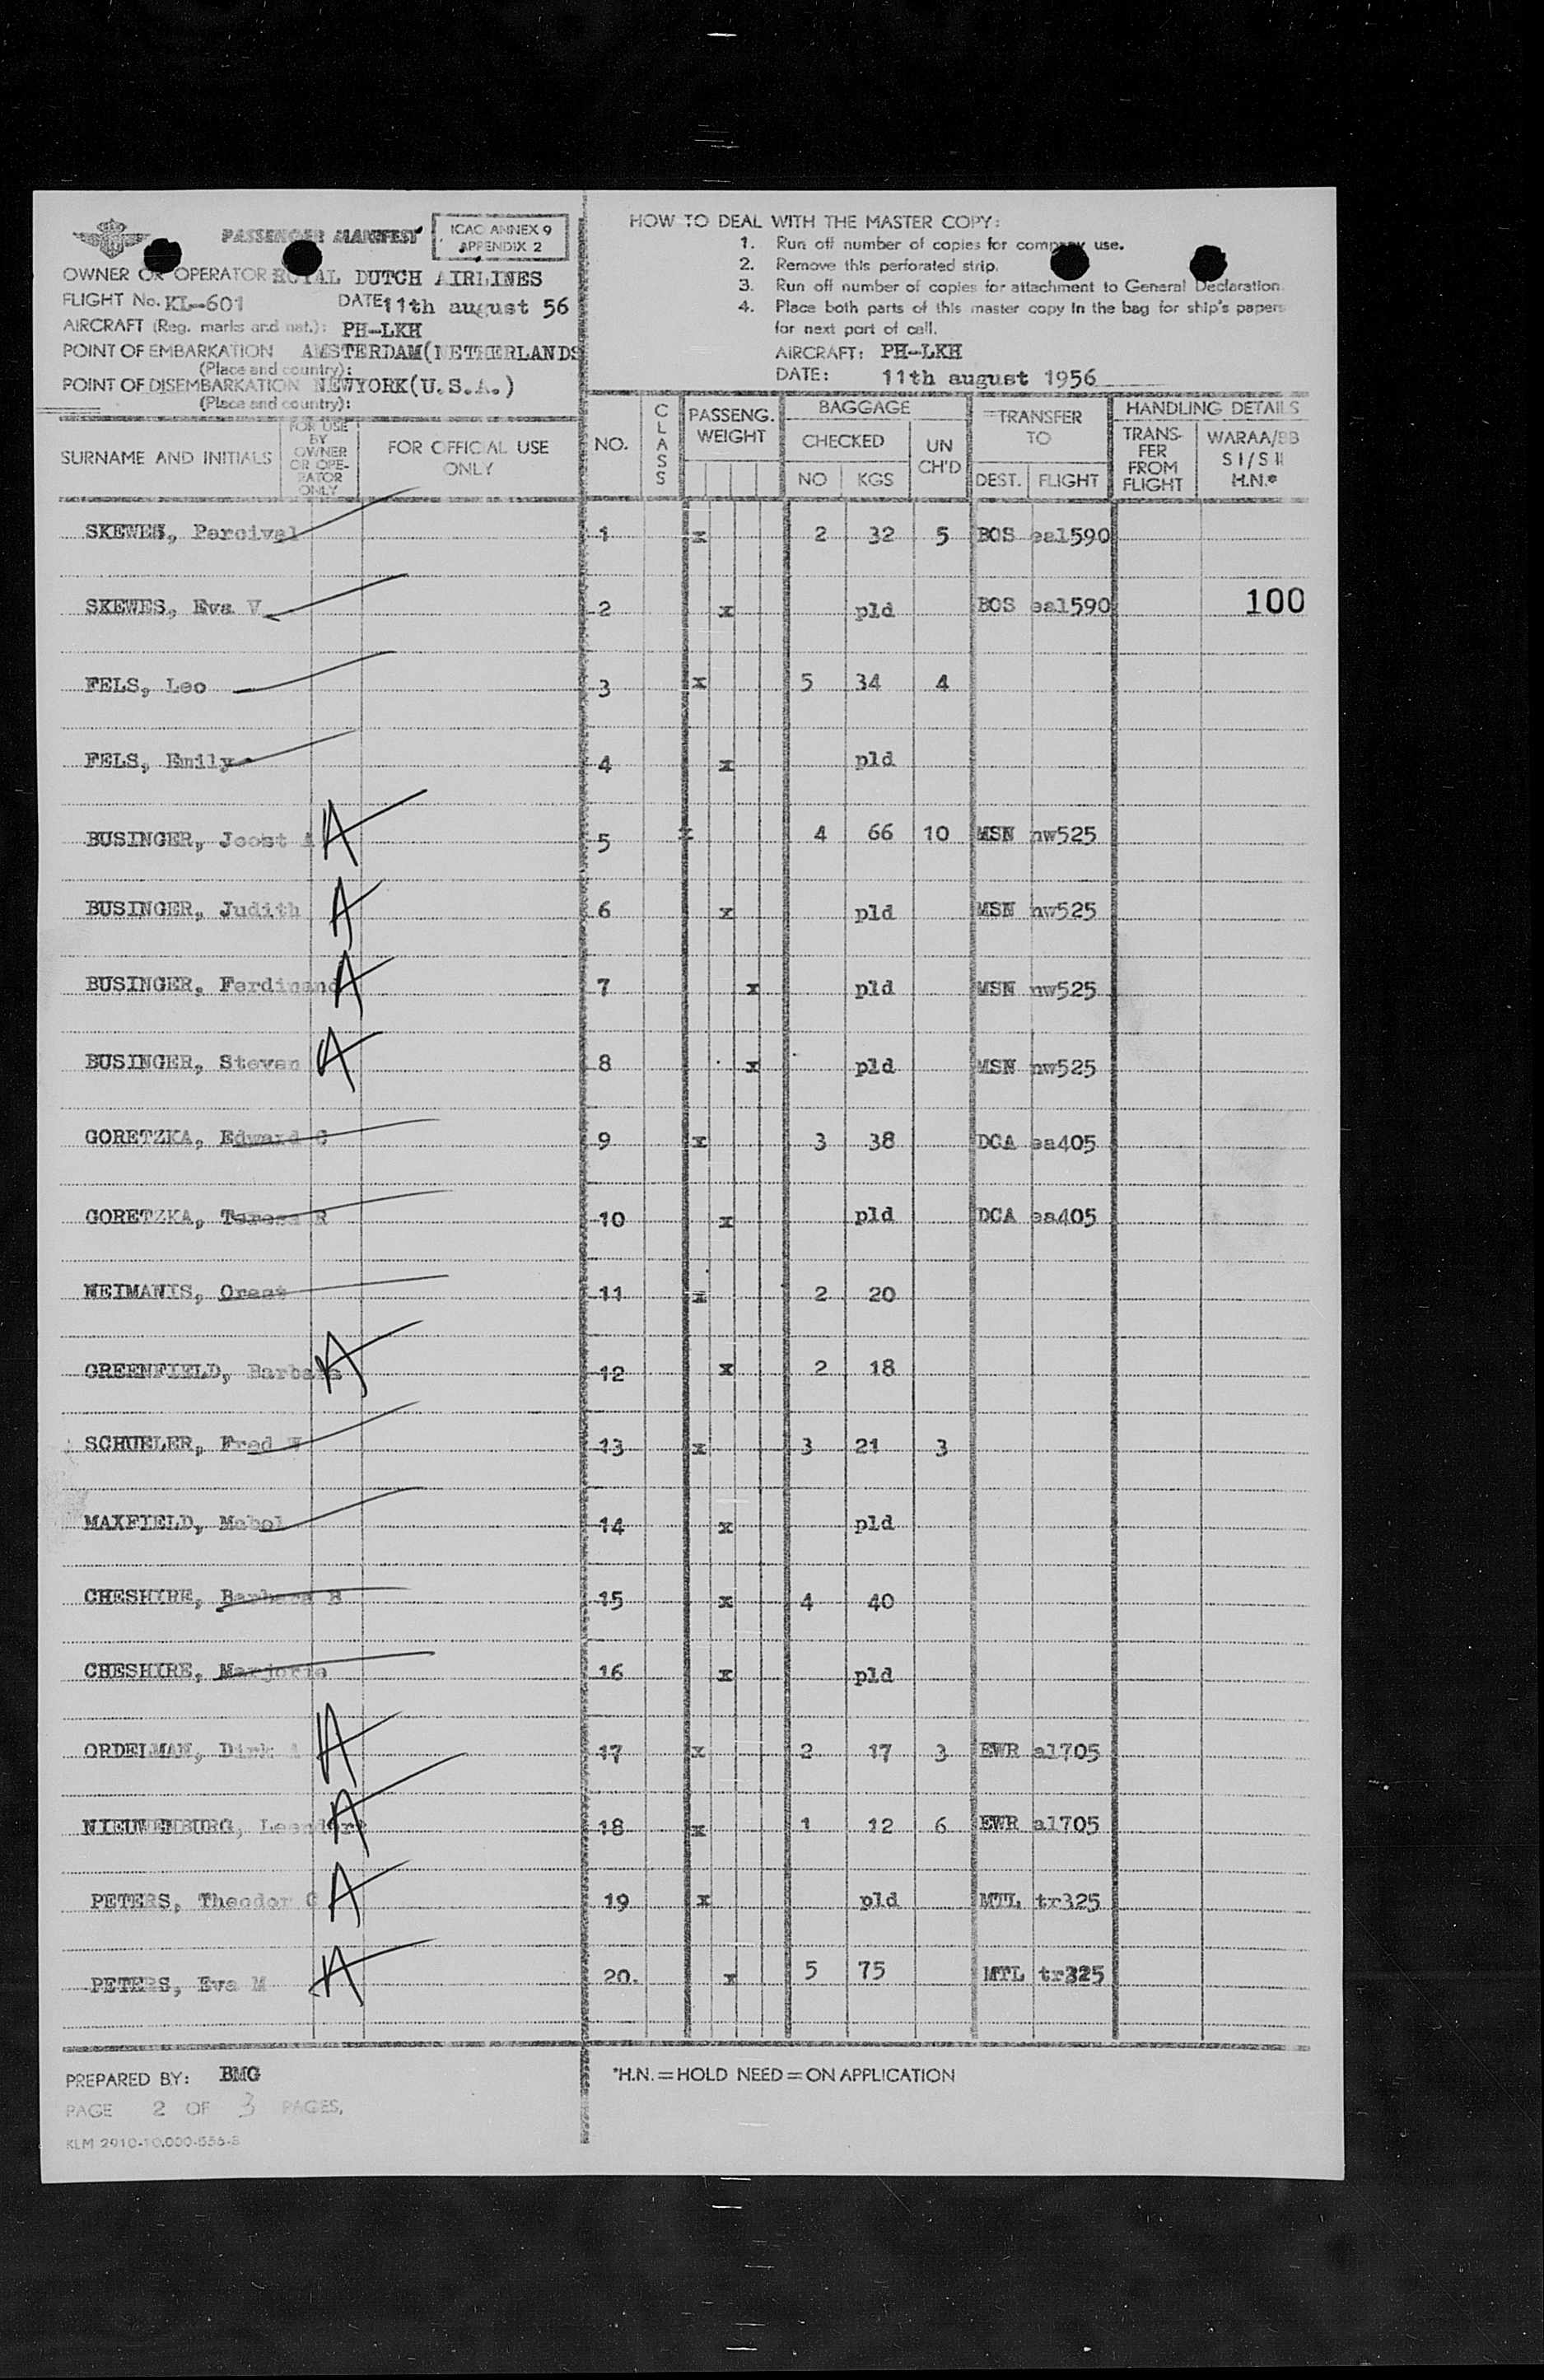 PASSENGER MANIFEST
ICAO ANNEX 9
APPENDIX 2
OWNER OR OPERATOR ROYAL DUTCH AIRLINES
FLIGHT No. KL-601 DATE 11th august 56
AIRCRAFT (Reg. marks and nat.): PH-LKH
POINT OF EMBARKATION AMSTERDAM(NETHERLANDS
(Place and country):
POINT OF DISEMBARKATION NEWYORK(U.S.A.)
(Place and country):
HOW TO DEAL WITH THE MASTER COPY:
1. Run off number of copies for company use.
2. Remove this perforated strip.
3. Run off number of copies for attachment to General Declaration.
4. Place both parts of this master copy in the bag for ship's papers
for next port of call.
AIRCRAFT: PH-LKH
DATE: 11th august 1956
SURNAME AND INITIALS
FOR USE BY OWNER OR OPE-RATOR ONLY
FOR OFFICIAL USE ONLY
NO. CLASS PASSENG. WEIGHT
BAGGAGE CHECKED NO KGS UN CH'D
TRANSFER TO DEST. FLIGHT
HANDLING DETAILS TRANS-FER FROM FLIGHT WARAA/BB S I / S II H.N.*
SKEWES, Percival 1 x 2 32 5 BOS ea1590
SKEWES, Eva V 2 x pld BOS ea1590 100
FELS, Leo 3 x 5 34 4
FELS, Emily 4 x pld
BUSINGER, Joost A A 5 x 4 66 10 MSN nw525
BUSINGER, Judith A 6 x pld MSN nw525
BUSINGER, Ferdinand A 7 x pld MSN nw525
BUSINGER, Stevan A 8 x pld MSN nw525
GORETZKA, Edward C 9 x 3 38 DCA ea405
GORETZKA, Teresa R 10 x pld DCA ea405
NEIMANIS, Orest 11 x 2 20
GREENFIELD, Barbara A 12 x 2 18
SCHUELER, Fred W 13 x 3 21 3
MAXFIELD, Mabel 14 x pld
CHESHIRE, Barbara B 15 x 4 40
CHESHIRE, Marjorie 16 x pld
ORDELMAN, Dirk A A 17 x 2 17 3 EWR al705
NIEUWENBURG, Leendert A 18 x 1 12 6 EWR al705
PETERS, Theodor G A 19 x pld MTL tr325
PETERS, Eva M A 20. x 5 75 MTL tr325
PREPARED BY: BMG
*H.N. = HOLD NEED = ON APPLICATION
PAGE 2 OF 3 PAGES.
KLM 2910-10.000-556-B